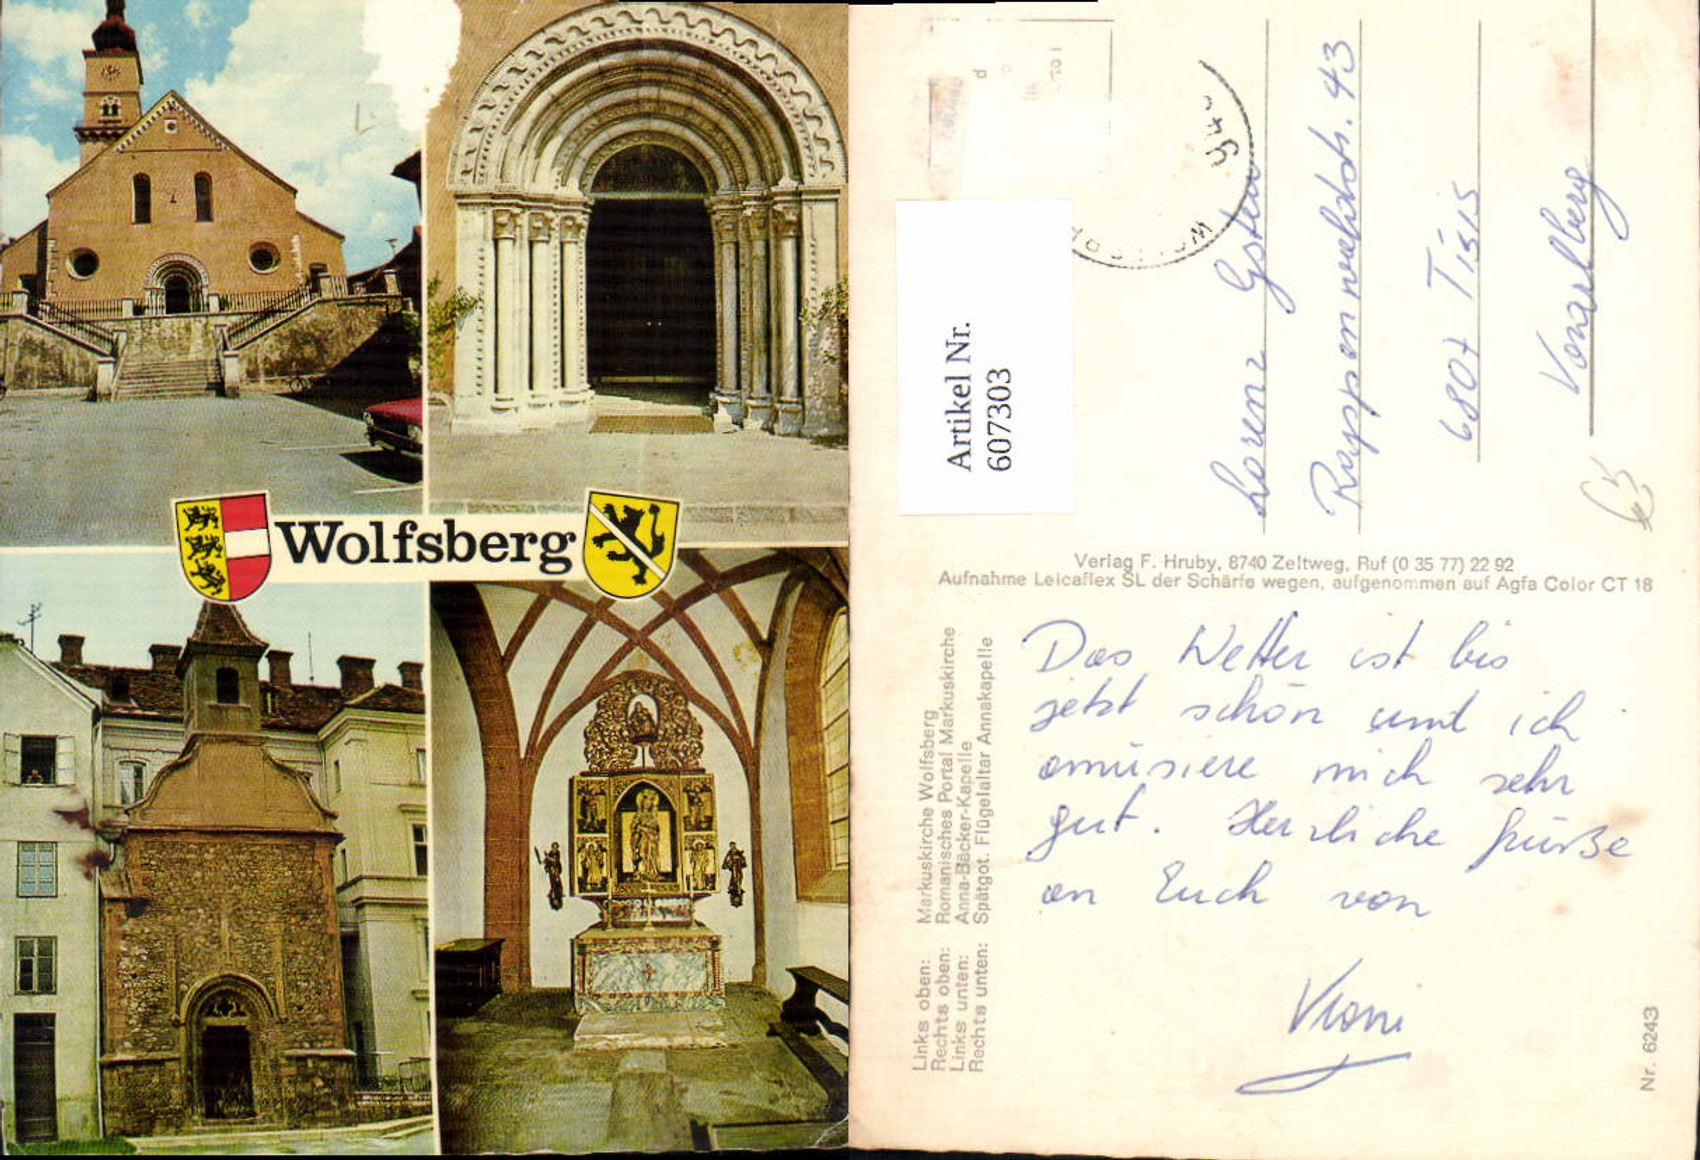 Wolfsberg
Artikel Nr.
607303
9400
Lorenz
43
6807 Tisis
Vorarlberg
Verlag F. Hruby, 8740 Zeltweg, Ruf (0 35 77) 22 92
Aufnahme Leicaflex SL der Schärfe wegen, aufgenommen auf Agfa Color CT 18
Links oben: Markuskirche Wolfsberg
Rechts oben: Romanisches Portal Markuskirche
Links unten: Anna-Bäcker-Kapelle
Rechts unten: Spätgot. Flügelaltar Annakapelle
Das Wetter ist bis
jetzt schön und ich
amüsiere mich sehr
gut. Herzliche Grüße
an Euch von
Nr. 6243